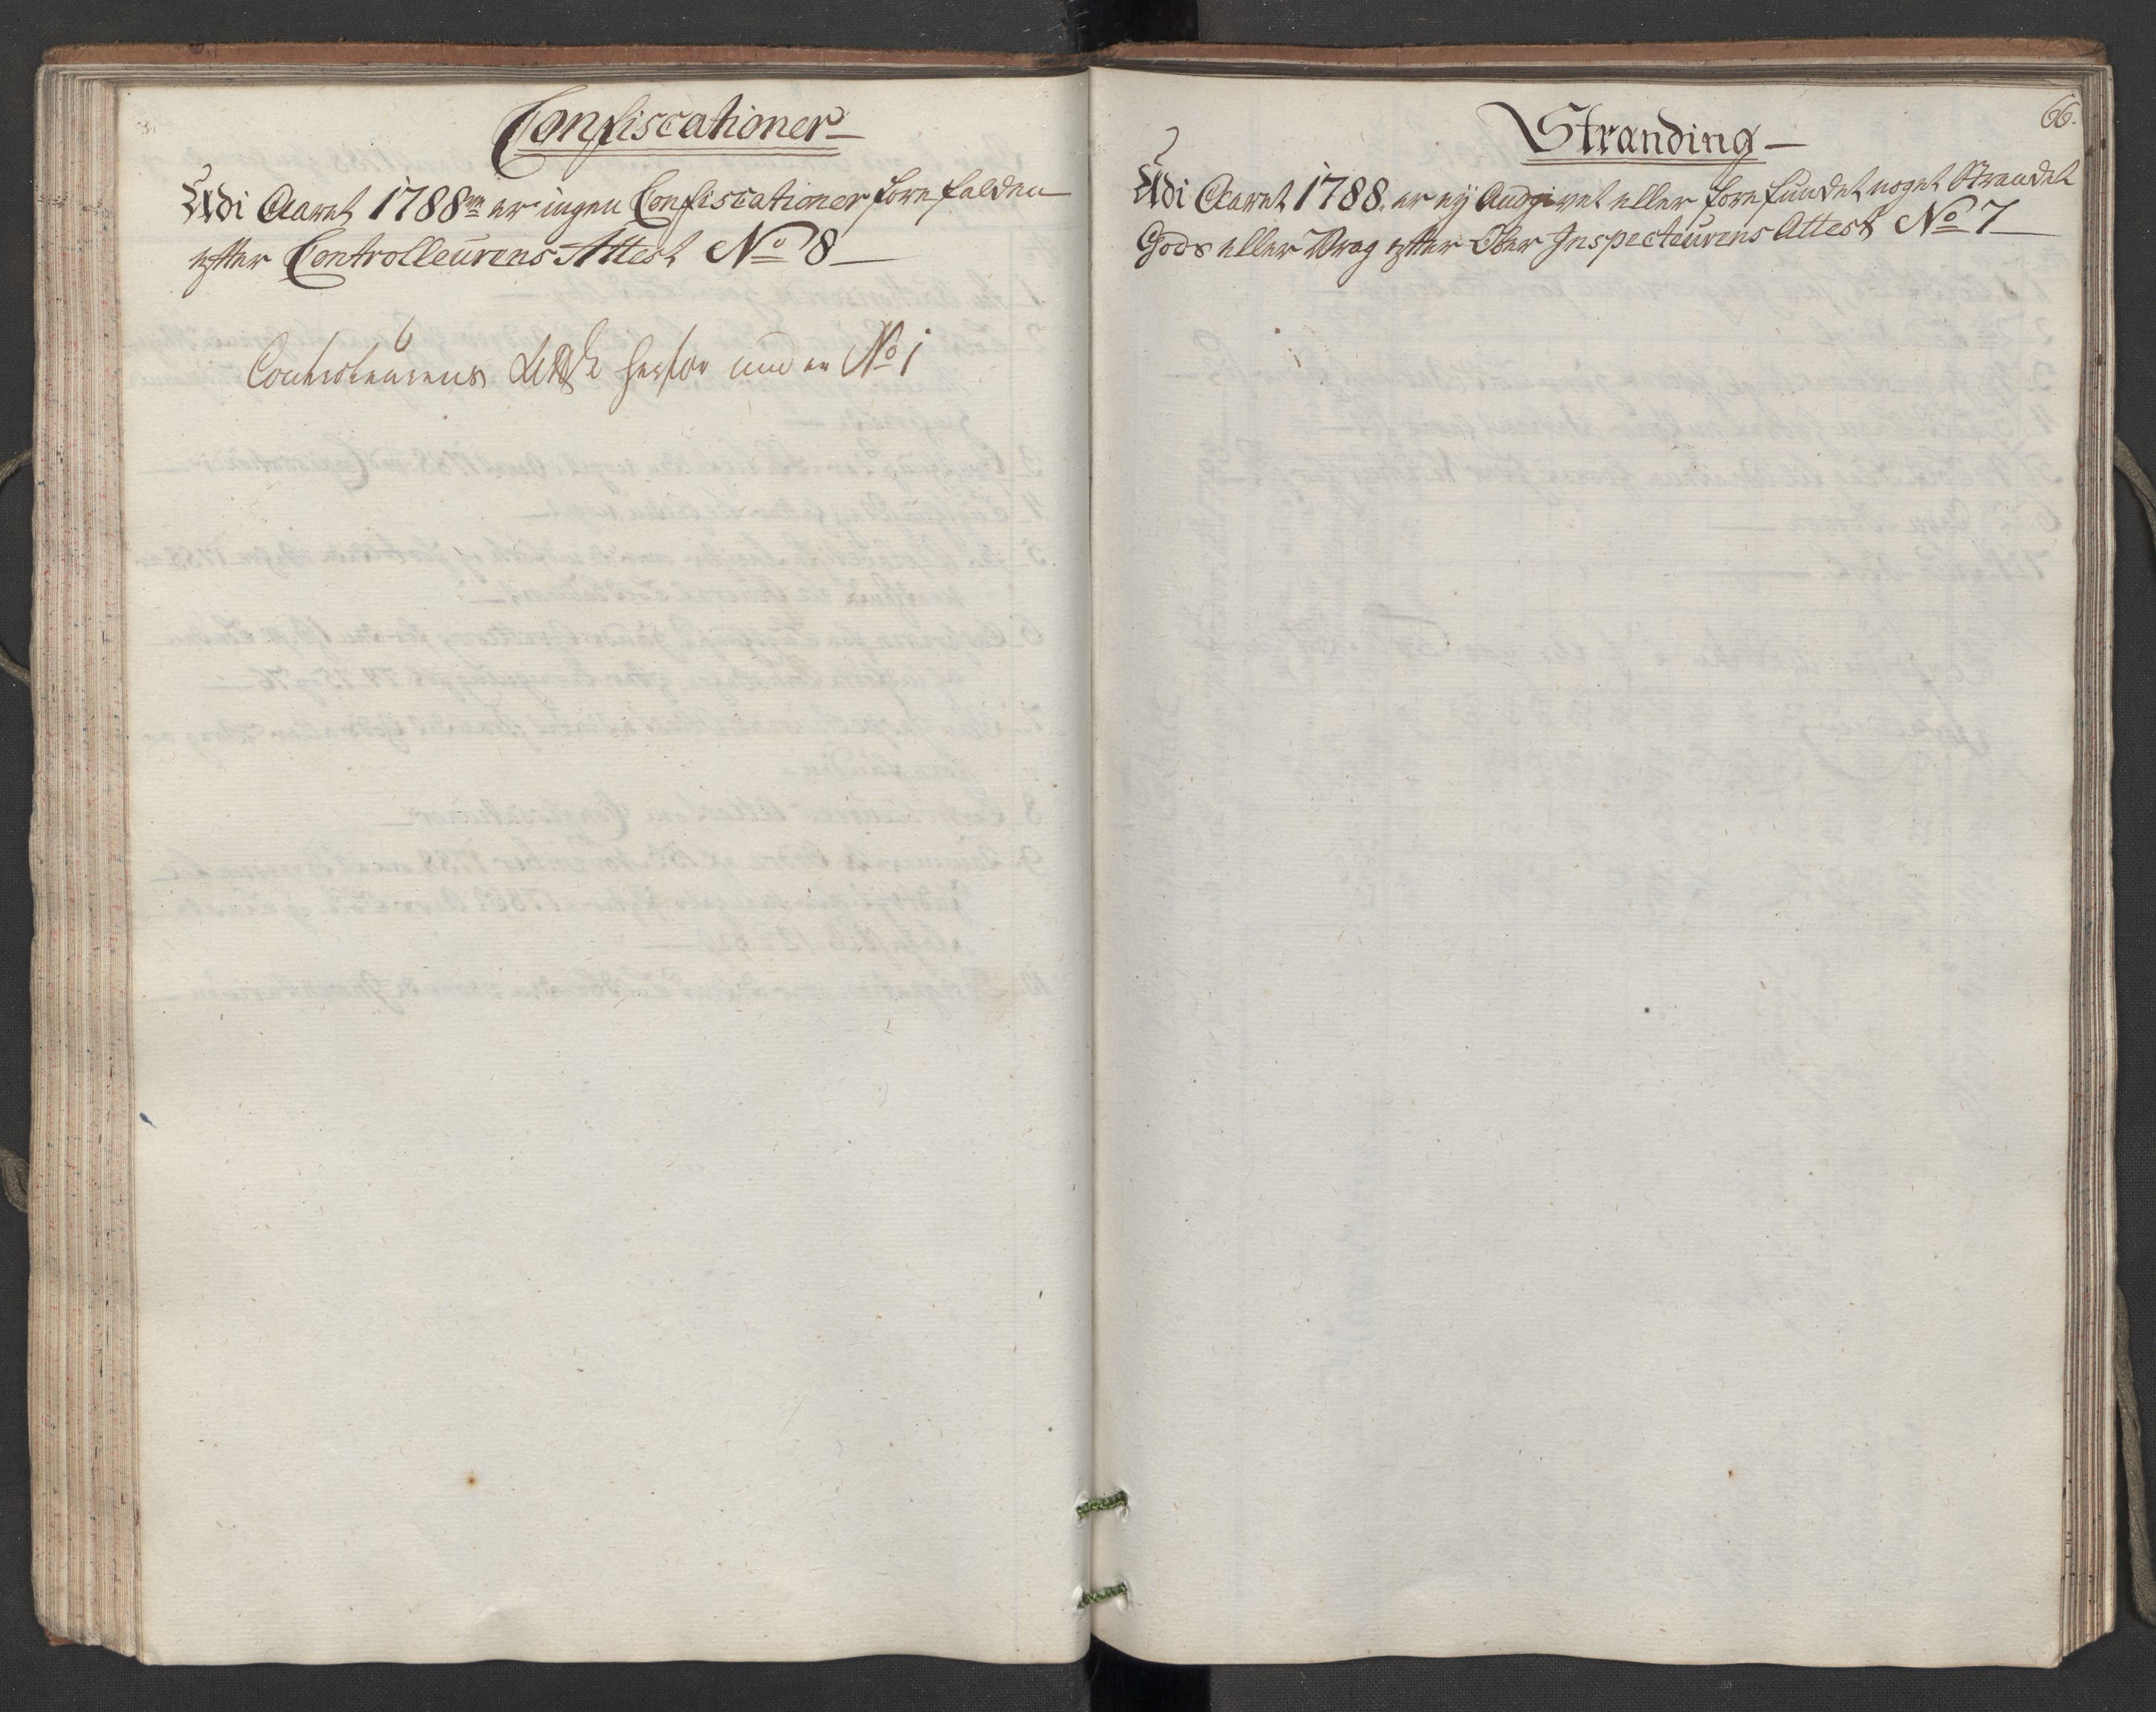 Confiscationer
Udi Aaret 1788de er ingen Confiscationer forefalden
efter Controlleurens Attest No 8
Controleurens Attest herfor under No 1
66.
Stranding
Udi Aaret 1788. er ey Andgivet eller forefundet noget Strandet
Gods eller Vrag efter Ober Inspecteurens Attest No 7